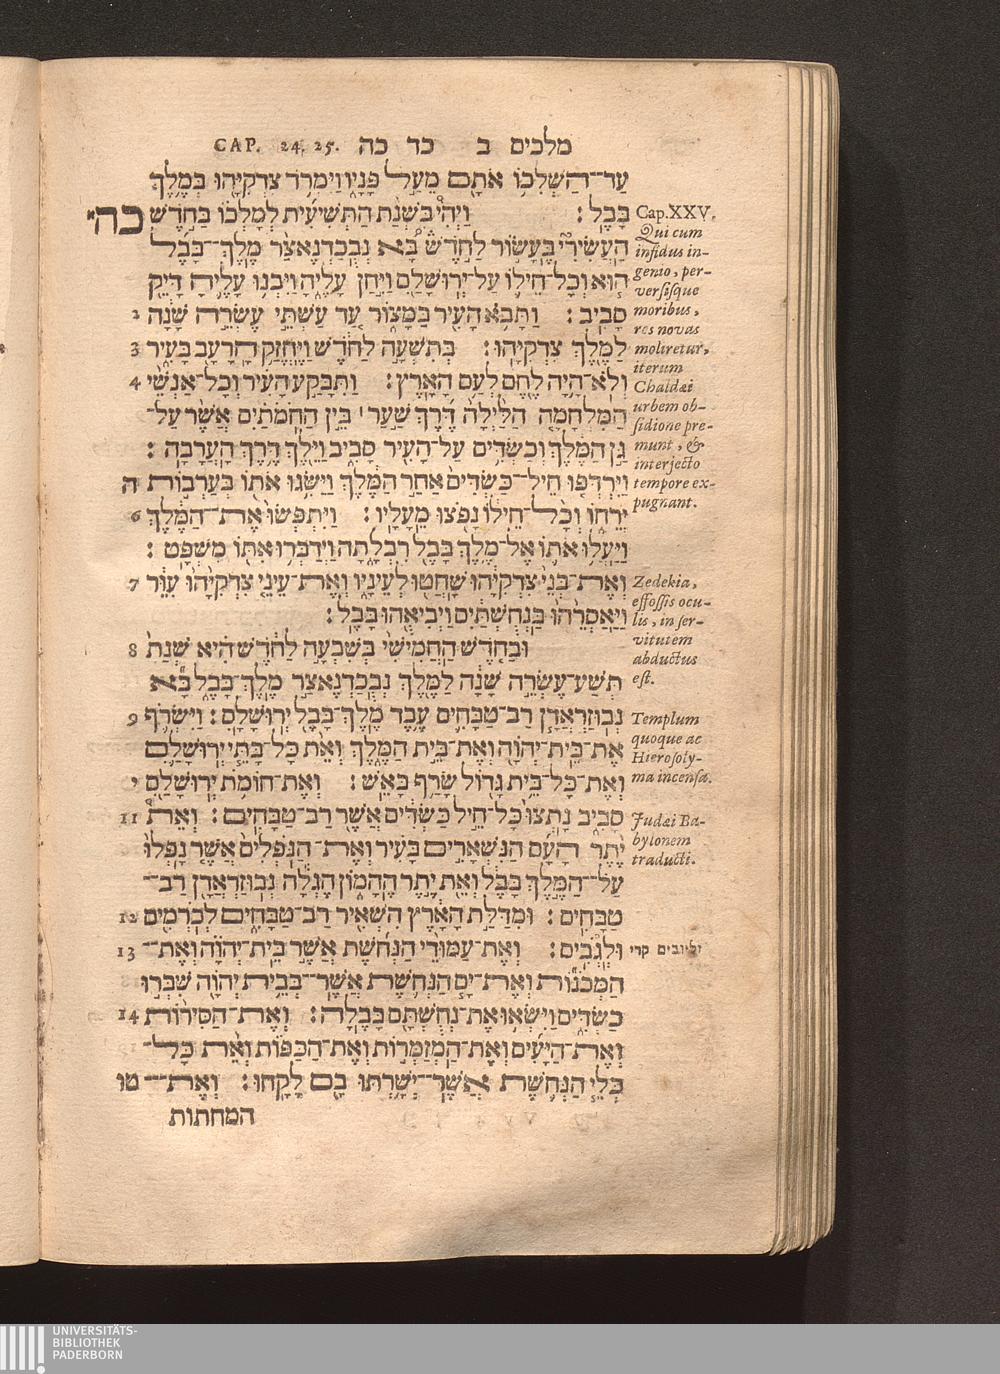 CAP. 24. 25. מלכים ב כד כה
עַד־הִשְׁלִכ֥וֹ אֹתָ֖ם מֵעַ֣ל פָּנָ֑יו וַיִּמְרֹ֥ד צִדְקִיָּ֖הוּ בְּמֶ֥לֶךְ
בָּבֶֽל׃ וַיְהִי֩ בִשְׁנַ֨ת הַתְּשִׁיעִ֜ית לְמָלְכ֗וֹ בַּחֹ֣דֶשׁ כה
הָעֲשִׂירִי֮ בֶּעָשׂ֣וֹר לַחֹדֶשׁ֒ בָּ֠א נְבֻכַדְנֶאצַּ֨ר מֶֽלֶךְ־בָּבֶ֜ל
ה֧וּא וְכָל־חֵיל֛וֹ עַל־יְרוּשָׁלִַ֖ם וַיִּ֣חַן עָלֶ֑יהָ וַיִּבְנ֥וּ עָלֶ֛יהָ דָּיֵ֖ק
סָבִֽיב׃ וַתָּבֹ֥א הָעִ֖יר בַּמָּצ֑וֹר עַ֚ד עַשְׁתֵּ֣י עֶשְׂרֵ֣ה שָׁנָ֔ה 2
לַמֶּ֖לֶךְ צִדְקִיָּֽהוּ׃ בְּתִשְׁעָ֣ה לַחֹ֔דֶשׁ וַיֶּחֱזַ֥ק הָרָעָ֖ב בָּעִ֑יר 3
וְלֹא־הָ֥יָה לֶ֖חֶם לְעַ֥ם הָאָֽרֶץ׃ וַתִּבָּקַ֣ע הָעִ֗יר וְכָל־אַנְשֵׁ֨י 4
הַמִּלְחָמָ֤ה הַלַּ֙יְלָה֙ דֶּ֜רֶךְ שַׁ֣עַר ׀ בֵּ֣ין הַחֹמֹתַ֗יִם אֲשֶׁר֙ עַל־
גַּ֣ן הַמֶּ֔לֶךְ וְכַשְׂדִּ֥ים עַל־הָעִ֖יר סָבִ֑יב וַיֵּ֖לֶךְ דֶּ֥רֶךְ הָעֲרָבָֽה׃
וַיִּרְדְּפ֤וּ חֵיל־כַּשְׂדִּים֙ אַחַ֣ר הַמֶּ֔לֶךְ וַיַּשִּׂ֥גוּ אֹת֖וֹ בְּעַרְב֣וֹת ה
יְרֵח֑וֹ וְכָ֨ל־חֵיל֔וֹ נָפֹ֖צוּ מֵעָלָֽיו׃ וַֽיִּתְפְּשׂוּ֙ אֶת־הַמֶּ֔לֶךְ 6
וַיַּעֲל֥וּ אֹת֛וֹ אֶל־מֶ֥לֶךְ בָּבֶ֖ל רִבְלָ֑תָה וַיְדַבְּר֥וּ אִתּ֖וֹ מִשְׁפָּֽט׃
וְאֶת־בְּנֵי֙ צִדְקִיָּ֔הוּ שָׁחֲט֖וּ לְעֵינָ֑יו וְאֶת־עֵינֵ֤י צִדְקִיָּ֙הוּ֙ עִוֵּ֔ר 7
וַיַּאַסְרֵ֙הוּ֙ בַּֽנְחֻשְׁתַּ֔יִם וַיְבִיאֵ֖הוּ בָּבֶֽל׃
וּבַחֹ֤דֶשׁ הַֽחֲמִישִׁי֙ בְּשִׁבְעָ֣ה לַחֹ֔דֶשׁ הִ֗יא שְׁנַת֙ 8
תְּשַֽׁע־עֶשְׂרֵ֣ה שָׁנָ֔ה לַמֶּ֖לֶךְ נְבֻכַדְנֶאצַּ֣ר מֶֽלֶךְ־בָּבֶ֑ל בָּ֞א
נְבוּזַרְאֲדָ֧ן רַב־טַבָּחִ֛ים עֶ֥בֶד מֶֽלֶךְ־בָּבֶ֖ל יְרוּשָׁלִָֽם׃ וַיִּשְׂרֹ֥ף 9
אֶת־בֵּית־יְהוָ֖ה וְאֶת־בֵּ֣ית הַמֶּ֑לֶךְ וְאֵ֨ת כָּל־בָּתֵּ֧י יְרוּשָׁלִַ֛ם
וְאֶת־כָּל־בֵּ֥ית גָּד֖וֹל שָׂרַ֥ף בָּאֵֽשׁ׃ וְאֶת־חוֹמֹ֥ת יְרוּשָׁלִַ֖ם י
סָבִ֑יב נָֽתְצוּ֙ כָּל־חֵ֣יל כַּשְׂדִּ֔ים אֲשֶׁ֖ר רַב־טַבָּחִֽים׃ וְאֵת֩ 11
יֶ֨תֶר הָעָ֜ם הַנִּשְׁאָרִ֣ים בָּעִ֗יר וְאֶת־הַנֹּֽפְלִים֙ אֲשֶׁ֤ר נָפְלוּ֙
עַל־הַמֶּ֣לֶךְ בָּבֶ֔ל וְאֵ֖ת יֶ֣תֶר הֶהָמ֑וֹן הֶגְלָ֕ה נְבוּזַרְאֲדָ֖ן רַב־
טַבָּחִֽים׃ וּמִדַּלַּ֣ת הָאָ֔רֶץ הִשְׁאִ֖יר רַב־טַבָּחִ֑ים לְכֹֽרְמִ֖ים 12
וּלְגֻבִֽים׃ וְאֶת־עַמּוּדֵ֨י הַנְּחֹ֜שֶׁת אֲשֶׁ֣ר בֵּית־יְהוָ֗ה וְֽאֶת־ 13
הַמְּכֹנ֞וֹת וְאֶת־יָ֧ם הַנְּחֹ֛שֶׁת אֲשֶׁ֥ר בְּבֵית־יְהוָ֖ה שִׁבְּר֣וּ
כַשְׂדִּ֑ים וַיִּשְׂא֥וּ אֶת־נְחֻשְׁתָּ֖ם בָּבֶֽלָה׃ וְאֶת־הַסִּירֹ֨ת 14
וְאֶת־הַיָּעִ֜ים וְאֶת־הַֽמְזַמְּר֣וֹת וְאֶת־הַכַּפּ֗וֹת וְאֵ֨ת כָּל־
כְּלֵ֧י הַנְּחֹ֛שֶׁת אֲשֶׁ֥ר יְשָֽׁרְתוּ־ בָ֖ם לָקָֽחוּ׃ וְאֶת־ טו
המחתות
Cap. XXV.
Qui cum
infidus in-
genio, per-
versisque
moribus,
res novas
moliretur,
iterum
Chaldæi
urbem ob-
sidione pre-
munt, &
interjecto
tempore ex-
pugnant.
Zedekia,
effossis ocu-
lis, in ser-
vitutem
abductus
est.
Templum
quoque ac
Hierosoly-
ma incensa.
Judæi Ba-
bylonem
traducti.
קרי
UNIVERSITÄTS-
BIBLIOTHEK
PADERBORN